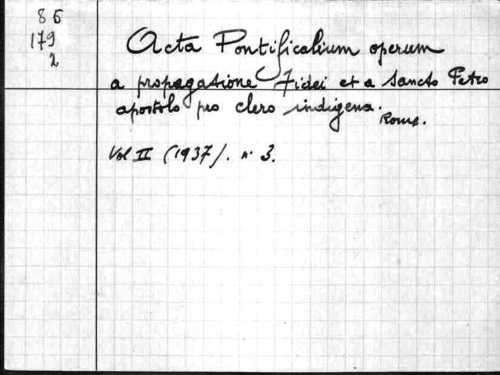 86
179
2
Acta Pontificalium operum
a propagatione Fidei et a Sancto Petro
apostolo pro clero indigena.
Rome.
Vol II (1937). n° 3.